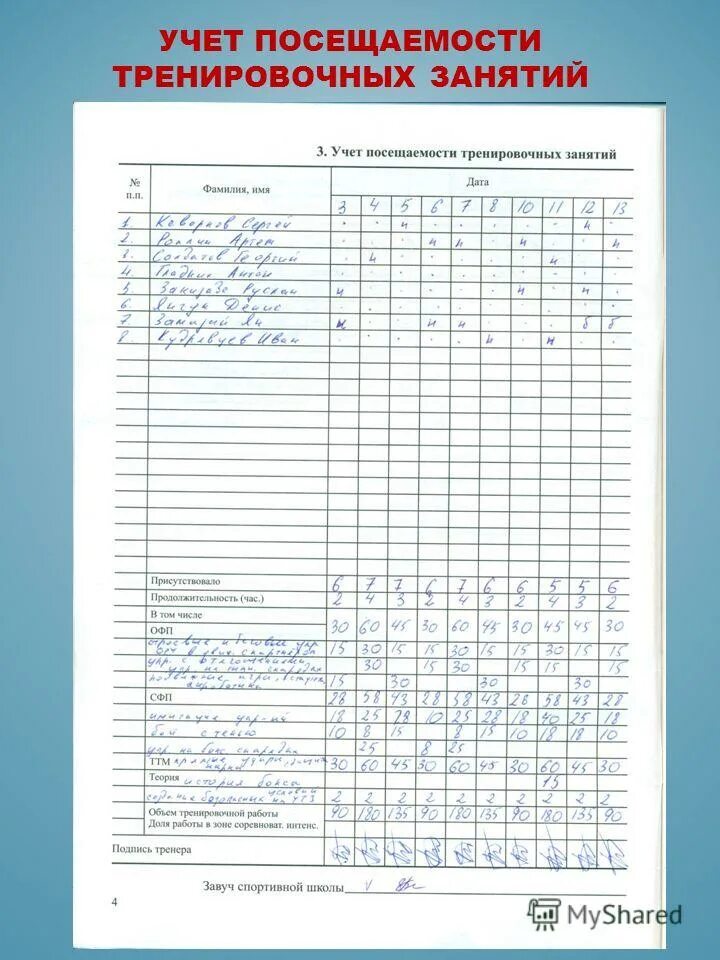 УЧЕТ ПОСЕЩАЕМОСТИ
ТРЕНИРОВОЧНЫХ ЗАНЯТИЙ
3. Учет посещаемости тренировочных занятий
№ п.п. Фамилия, имя Дата
3 4 5 6 7 8 10 11 12 13
1. Сергей н н
2. Артем н н н н
3. Солдатов Георгий н н
4. Гладкий Антон
5. Руслан н н н
6. Денис
7. Ян н н н б б
8. Кудрявцев Иван н н
Присутствовало 6 7 7 6 7 6 6 5 5 6
Продолжительность (час.) 2 4 3 2 4 3 2 4 3 2
В том числе
ОФП 30 60 45 30 60 45 30 60 45 30
строевые и беговые упр. 15 30 15 15 30 15 15 30 15 15
упр. с отягощениями, 30 15 30 15 15
подвижные игры, 15 30 30 30
СФП 28 58 43 28 58 43 28 58 43 28
имитация упр-ий 18 25 28 10 25 28 18 40 25 18
бой с тенью 10 8 15 8 15 10 18 18 10
упр. на бокс. снарядах 25 8 25
ТТМ прямые удары, защита 30 60 45 30 60 45 30 60 45 30
Теория история бокса 15
условий
безопасных на УТЗ 2 2 2 2 2 2 2 2 2 2
Объем тренировочной работы 90 180 135 90 180 135 90 180 135 90
Доля работы в зоне соревноват. интенс.
Подпись тренера
Завуч спортивной школы
4
MyShared